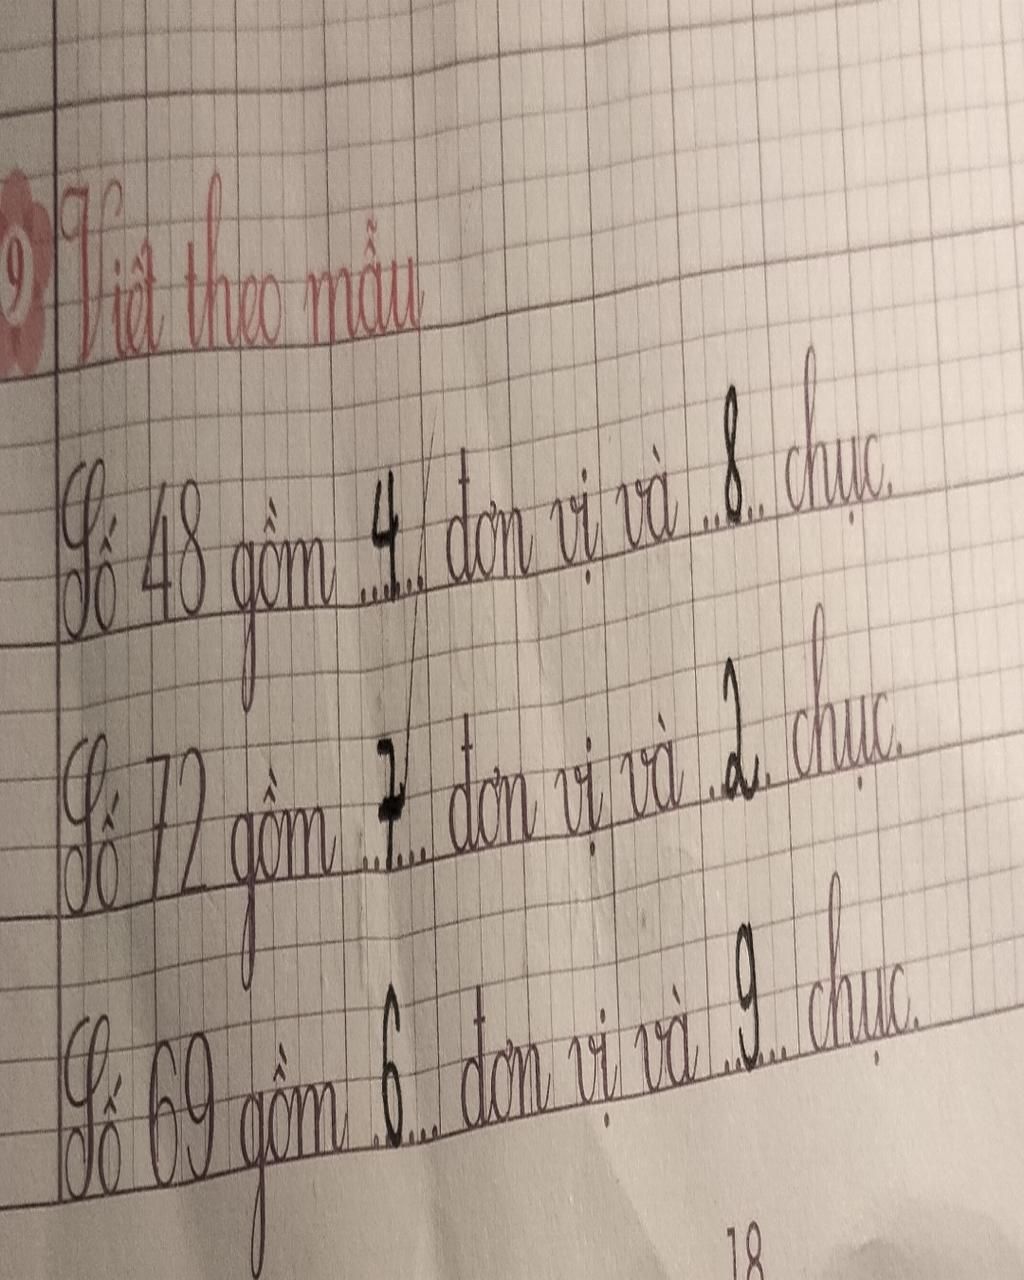 9 Viết theo mẫu
Số 48 gồm ..4... đơn vị và ..8.. chục.
Số 72 gồm ..7... đơn vị và .2. chục.
Số 69 gồm .6... đơn vị và ..9... chục.
18